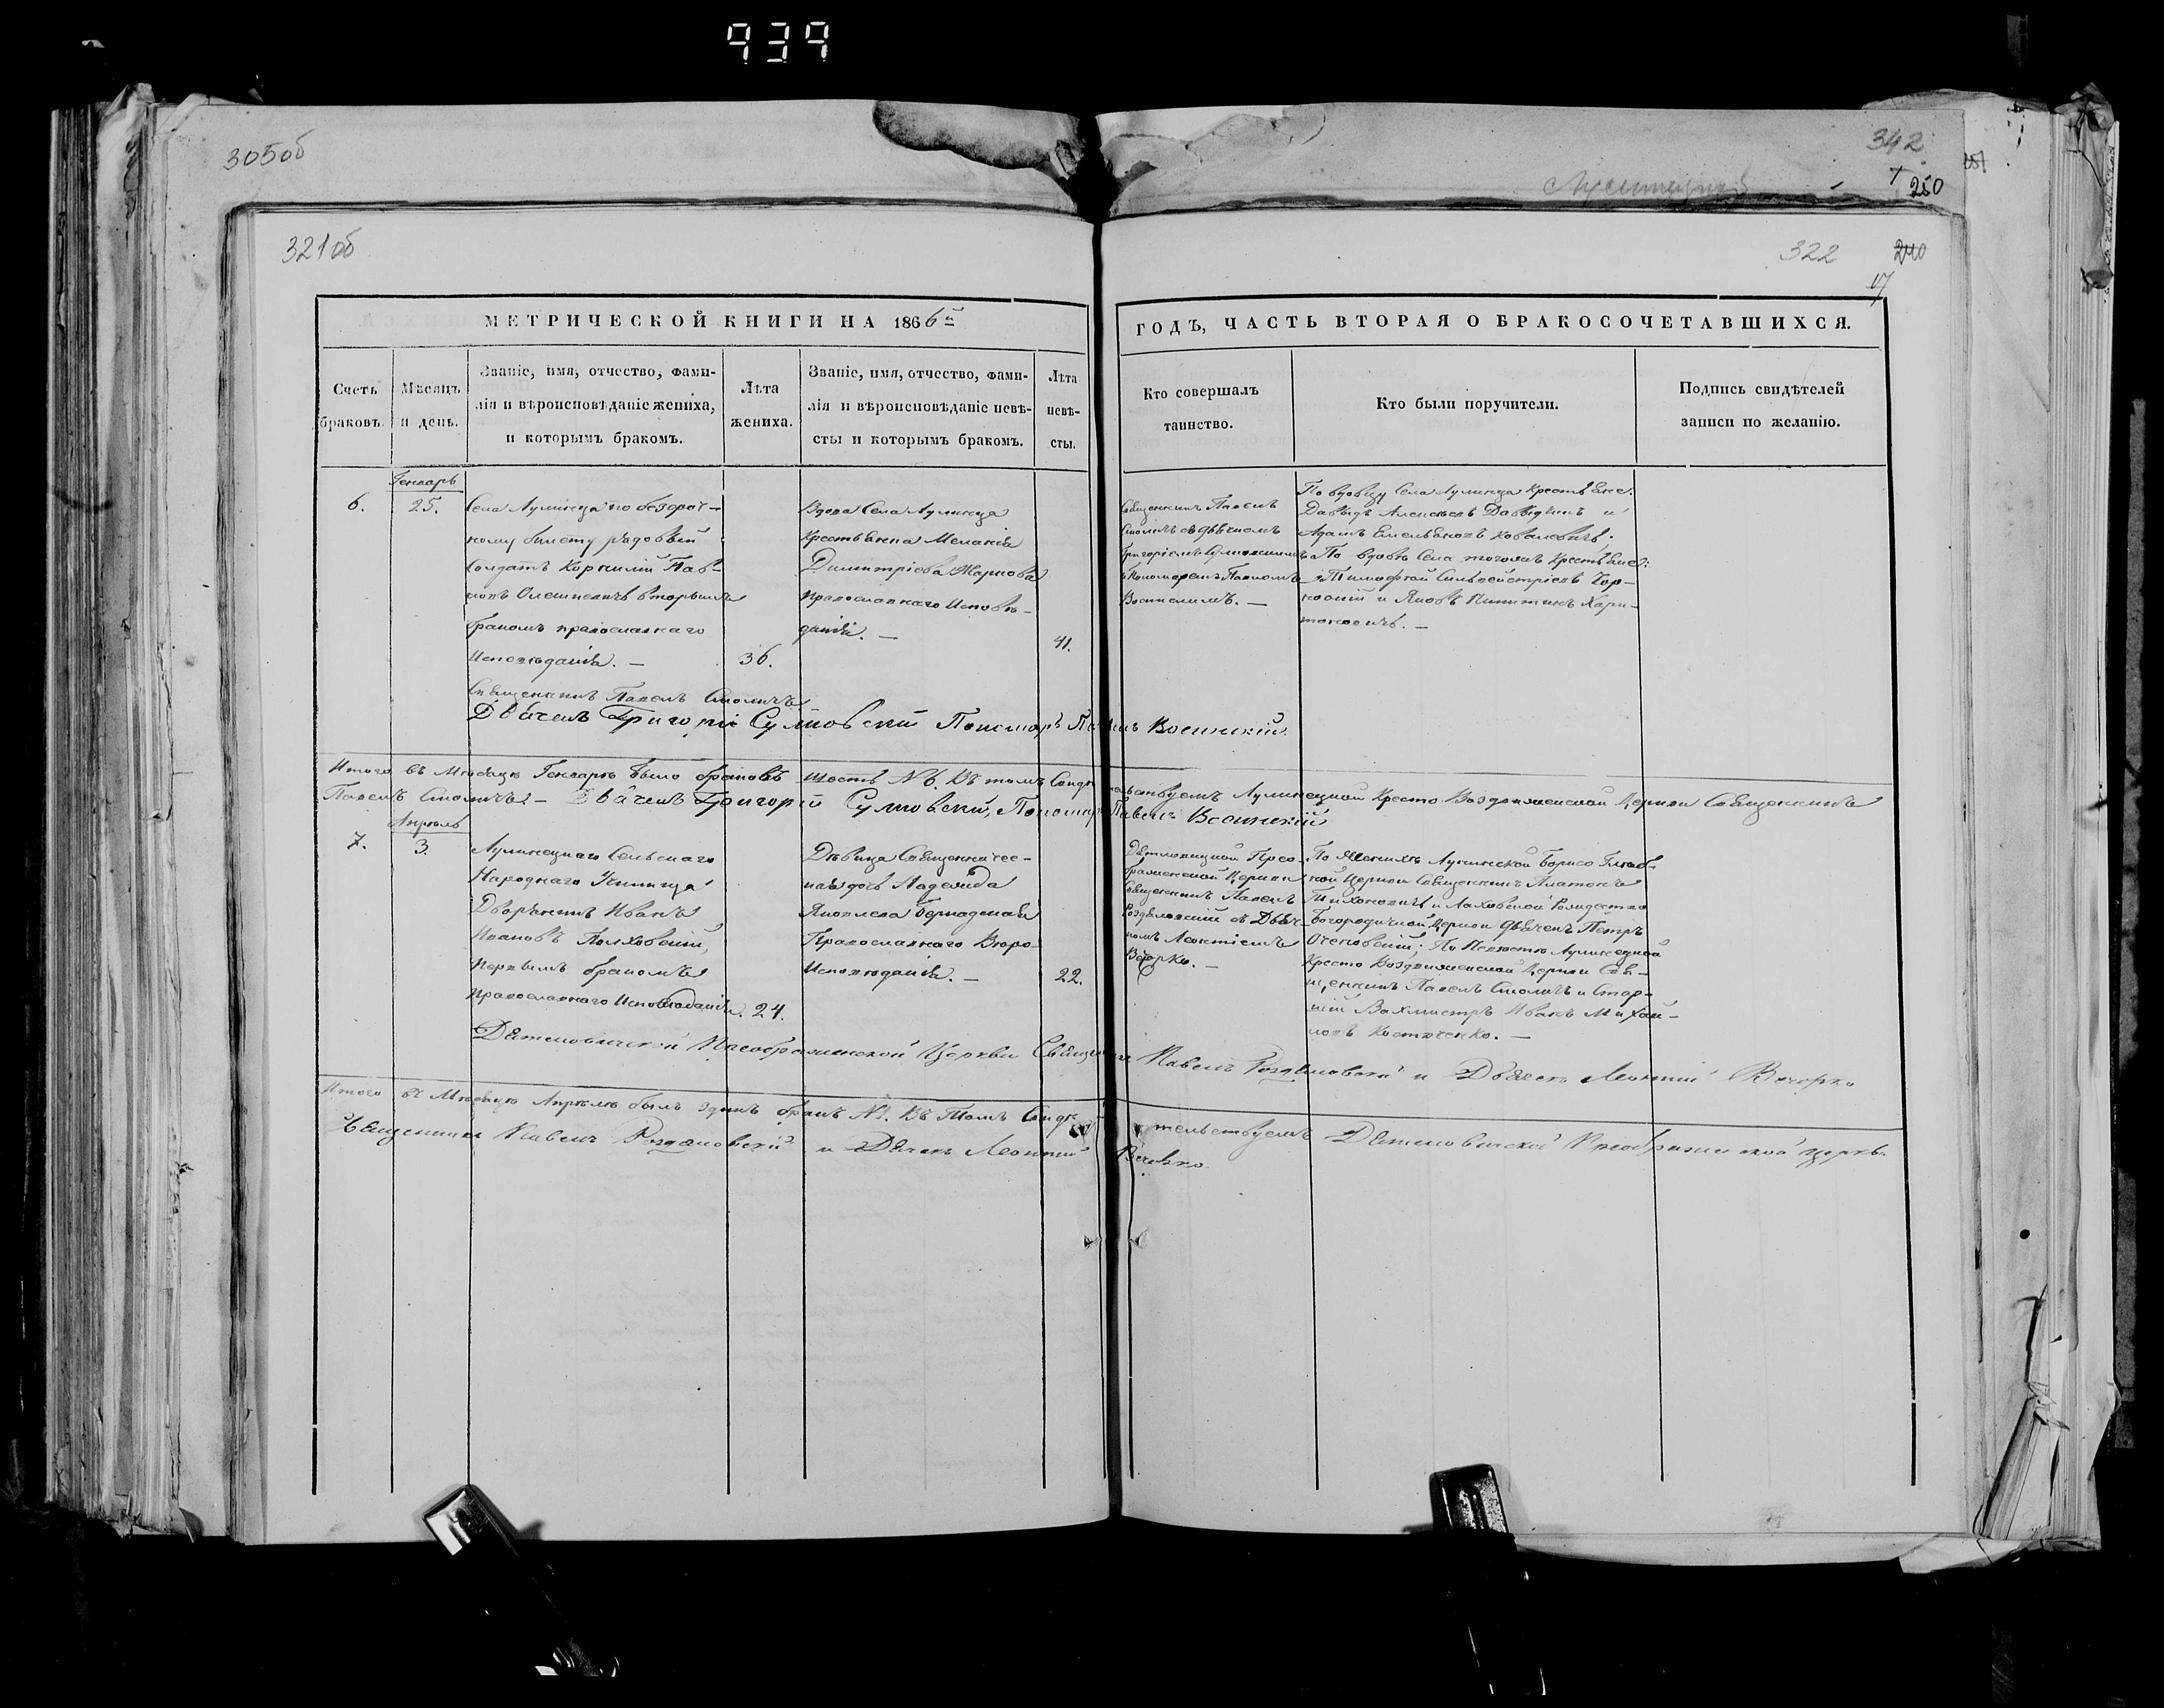 939
305об
342
250
321об
322
240
МЕТРИЧЕСКОЙ КНИГИ НА 1866й
ГОДЪ, ЧАСТЬ ВТОРАЯ О БРАКОСОЧЕТАВШИХСЯ.
Счетъ
браковъ.
Мѣсяцъ
и день.
Званіе, имя, отчество, фами-
лія и вѣроисповѣданіе жениха,
и которымъ бракомъ.
Лѣта
жениха.
Званіе, имя, отчество, фами-
лія и вѣроисповѣданіе невѣ-
сты и которымъ бракомъ.
Лѣта
невѣ-
сты.
Кто совершалъ
таинство.
Кто были поручители.
Подпись свидѣтелей
записи по желанію.
Генварь
6.
25.
Села Лунинца по безсроч-
ному билету рядовый
Солдатъ Корнилій Пав-
ловъ вторымъ
бракомъ православнаго
Исповѣданія. —
36.
Вдова Села Лунинца
Крестьянка Меланія
Димитріева
православнаго Исповѣ-
данія. —
41.
Священникъ Павелъ
Смоличъ съ дьячкомъ
Григоріемъ
и Пономаремъ Павломъ
По вдовцу Села Лунинца Крестьяне:
Давыдъ Алексѣевъ Давыдчикъ и
Адамъ Емельяновъ Ковалевичъ;
По вдовѣ Села тогожъ Крестьяне:
Тимофей Сильвестріевъ Чер-
и Яковъ Никитинъ Хари-
тоновичъ. —
Священникъ Павелъ Смоличъ
Дьячекъ Григорій Пономарь Павелъ
Итого въ Мѣсяцѣ Генварѣ было браковъ шесть № 6. Въ томъ Свидѣтельствуемъ Лунинецкой Кресто-Воздвиженской Церкви Священникъ
Павелъ Смоличъ — Дьячекъ Григорій Пономарь Павелъ
Апрѣль
7.
3.
Лунинецкаго Сельскаго
Народнаго Училища
Дворянинъ Иванъ
Ивановъ
первымъ бракомъ
православнаго Исповѣданія.
24.
Дѣвица Священничес-
кая дочь Надежда
Яковлева Бернадская
Православнаго Вѣро-
Исповѣданія. —
22.
Дятловицкой Прео-
браженской Церкви
Священникъ Павелъ
съ Дьяч-
комъ Леонтіемъ
Вечорко. —
По Женихѣ Лунинской Борисо-Глѣб-
ской Церкви Священникъ Платонъ
Тихоновичъ и Лаховской Рождество
Богородичной Церкви дьячекъ Петръ
По Невѣстѣ Лунинецкой
Кресто Воздвиженской Церкви Свя-
щенникъ Павелъ Смоличъ и Стар-
шій Вахмистръ Иванъ Михай-
ловъ Костюченко. —
Дятловичской Преображенской Церкви Священникъ Павелъ и Дьячекъ Леонтій Вечорко
Итого въ Мѣсяцѣ Апрѣлѣ былъ одинъ бракъ № 1. Въ Томъ Свидѣтельствуемъ Дятловичской Преображенской церкви
Священникъ Павелъ и Дьячекъ Леонтій Вечорко.